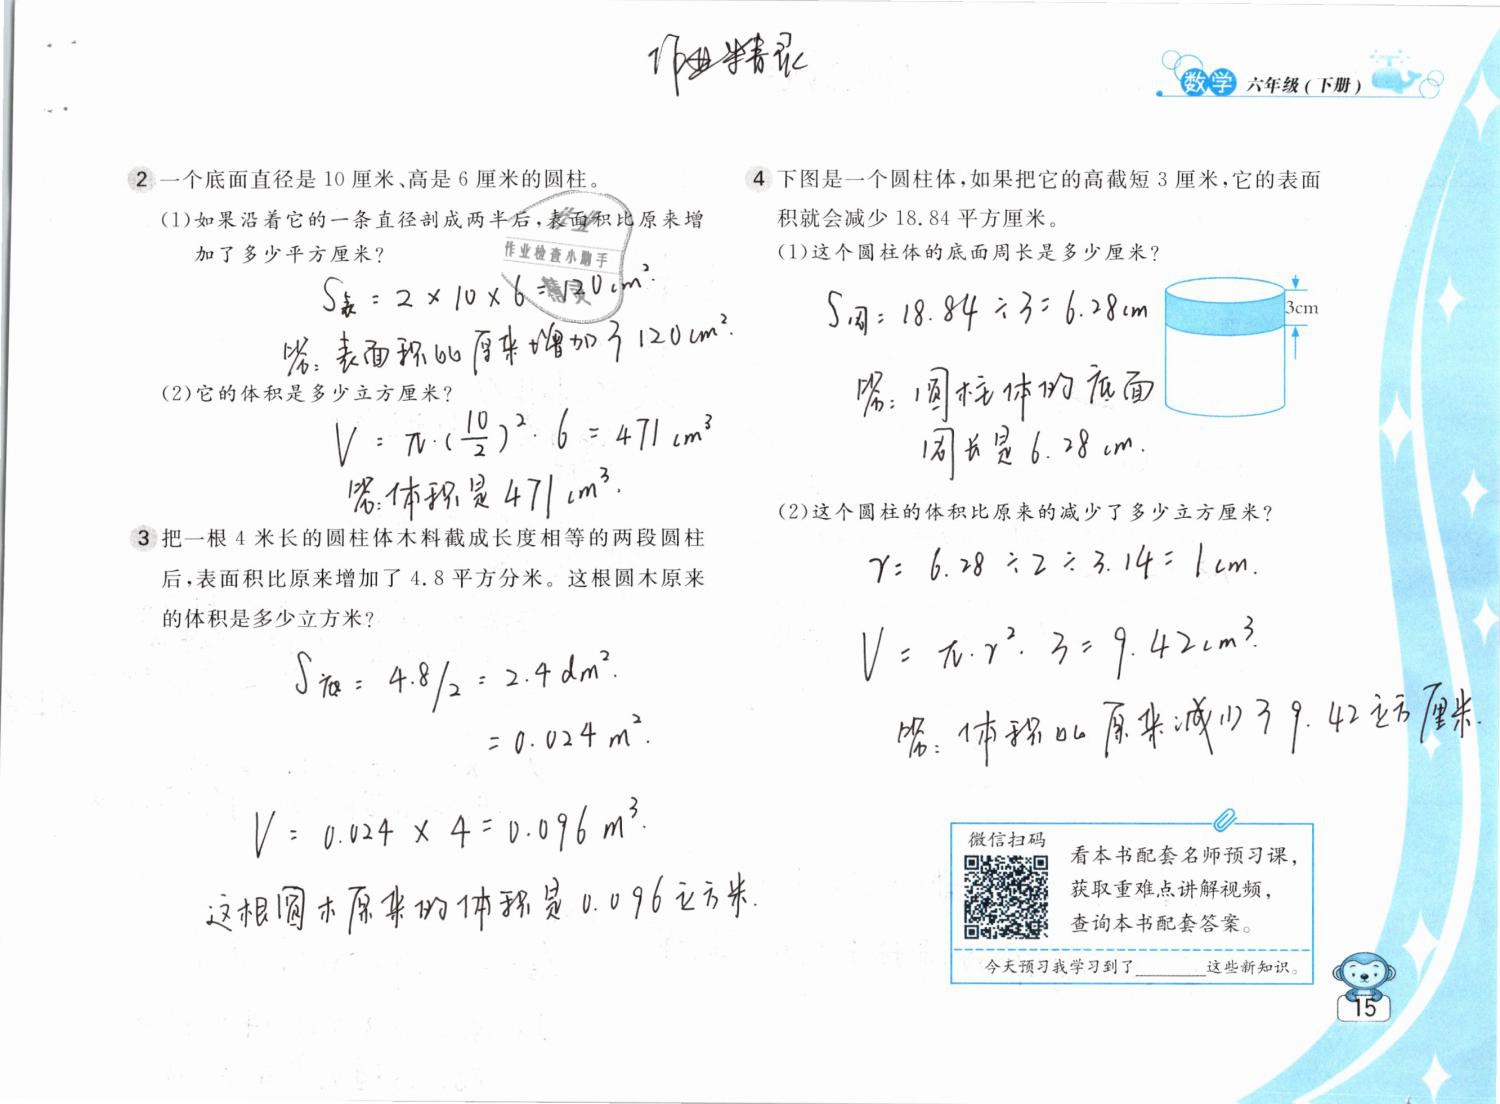 作业精灵
数学 六年级(下册)
2 一个底面直径是 10 厘米、高是 6 厘米的圆柱。
(1)如果沿着它的一条直径剖成两半后,表面积比原来增
加了多少平方厘米?
作业
作业检查小助手
精灵
S表 = 2 × 10 × 6 = 120 cm².
答: 表面积比原来增加了 120 cm².
(2)它的体积是多少立方厘米?
V = π·(10/2)²·6 = 471 cm³
答:体积是 471 cm³.
3 把一根 4 米长的圆柱体木料截成长度相等的两段圆柱
后,表面积比原来增加了 4.8 平方分米。这根圆木原来
的体积是多少立方米?
S底 = 4.8/2 = 2.4 dm².
= 0.024 m².
V = 0.024 × 4 = 0.096 m³.
这根圆木原来的体积是 0.096 立方米.
4 下图是一个圆柱体,如果把它的高截短 3 厘米,它的表面
积就会减少 18.84 平方厘米。
(1)这个圆柱体的底面周长是多少厘米?
S周 = 18.84 ÷ 3 = 6.28 cm
3cm
答: 圆柱体的底面
周长是 6.28 cm.
(2)这个圆柱的体积比原来的减少了多少立方厘米?
r = 6.28 ÷ 2 ÷ 3.14 = 1 cm.
V = π·r²·3 = 9.42 cm³.
答: 体积比原来减少了 9.42 立方厘米.
微信扫码
看本书配套名师预习课,
获取重难点讲解视频,
查询本书配套答案。
今天预习我学习到了______这些新知识。
15